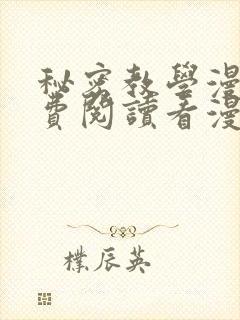 秘密教學漫
費閱讀看漫
樸辰英